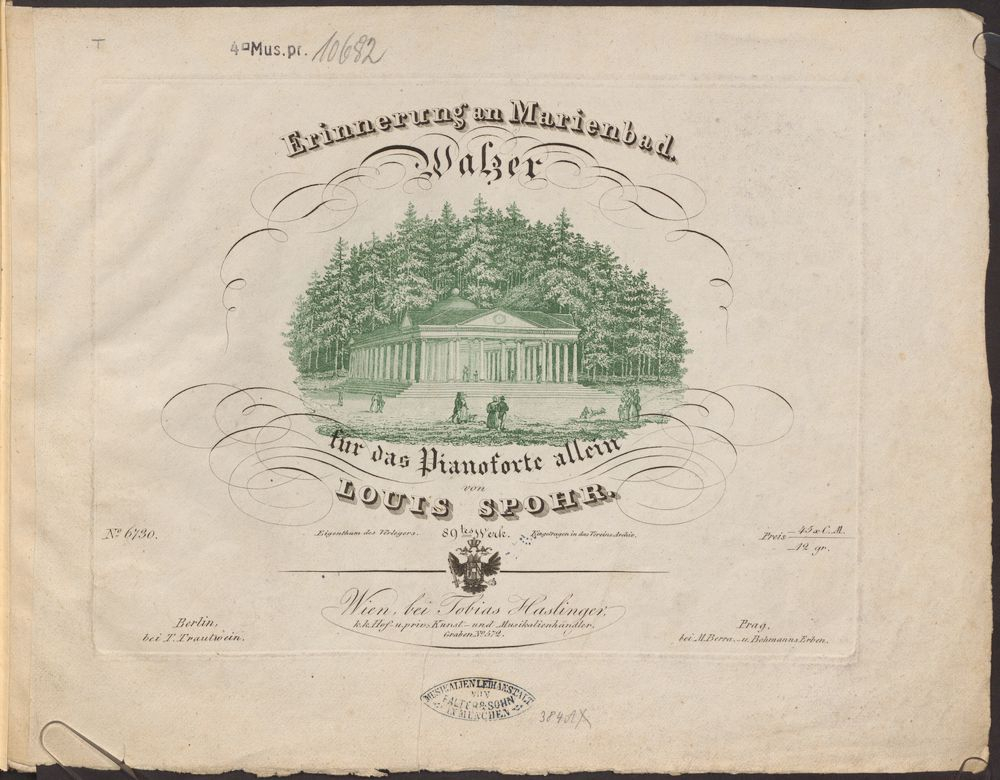 T
4° Mus.pr. 10682
Erinnerung an Marienbad.
Walzer
für das Pianoforte allein
von
LOUIS SPOHR.
No 6730.
Eigenthum des Verlegers.
89tes Werk.
Eingetragen in das Vereins Archiv.
Preis 45 x C. M.
12 gr.
Wien, bei Tobias Haslinger,
k.k. Hof- u. priv. Kunst- und Musikalienhändler,
Graben No 572.
Berlin,
bei T. Trautwein.
Prag,
bei M. Berra, u. Bohmanns Erben.
MUSIKALIENLEIHANSTALT
VON
FALTER & SOHN
IN MÜNCHEN